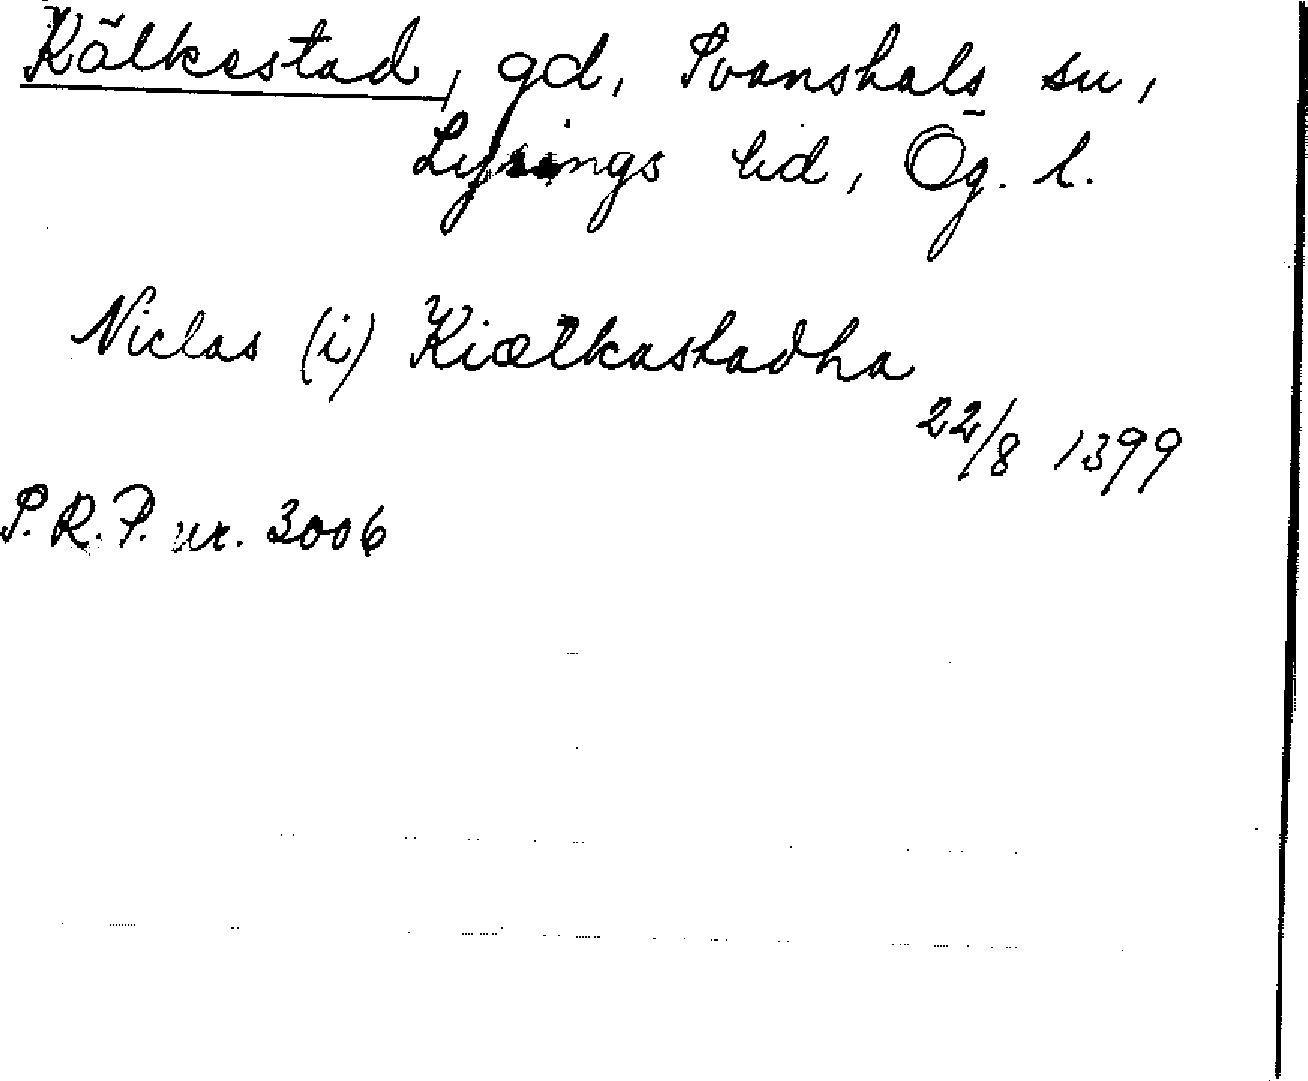 Kälkestad, gd, Svanshals sn,
Lysings hd, Ög. l.
Niclas (i) Kiælkastadha
22/8 1399
P.R.P. nr. 3006